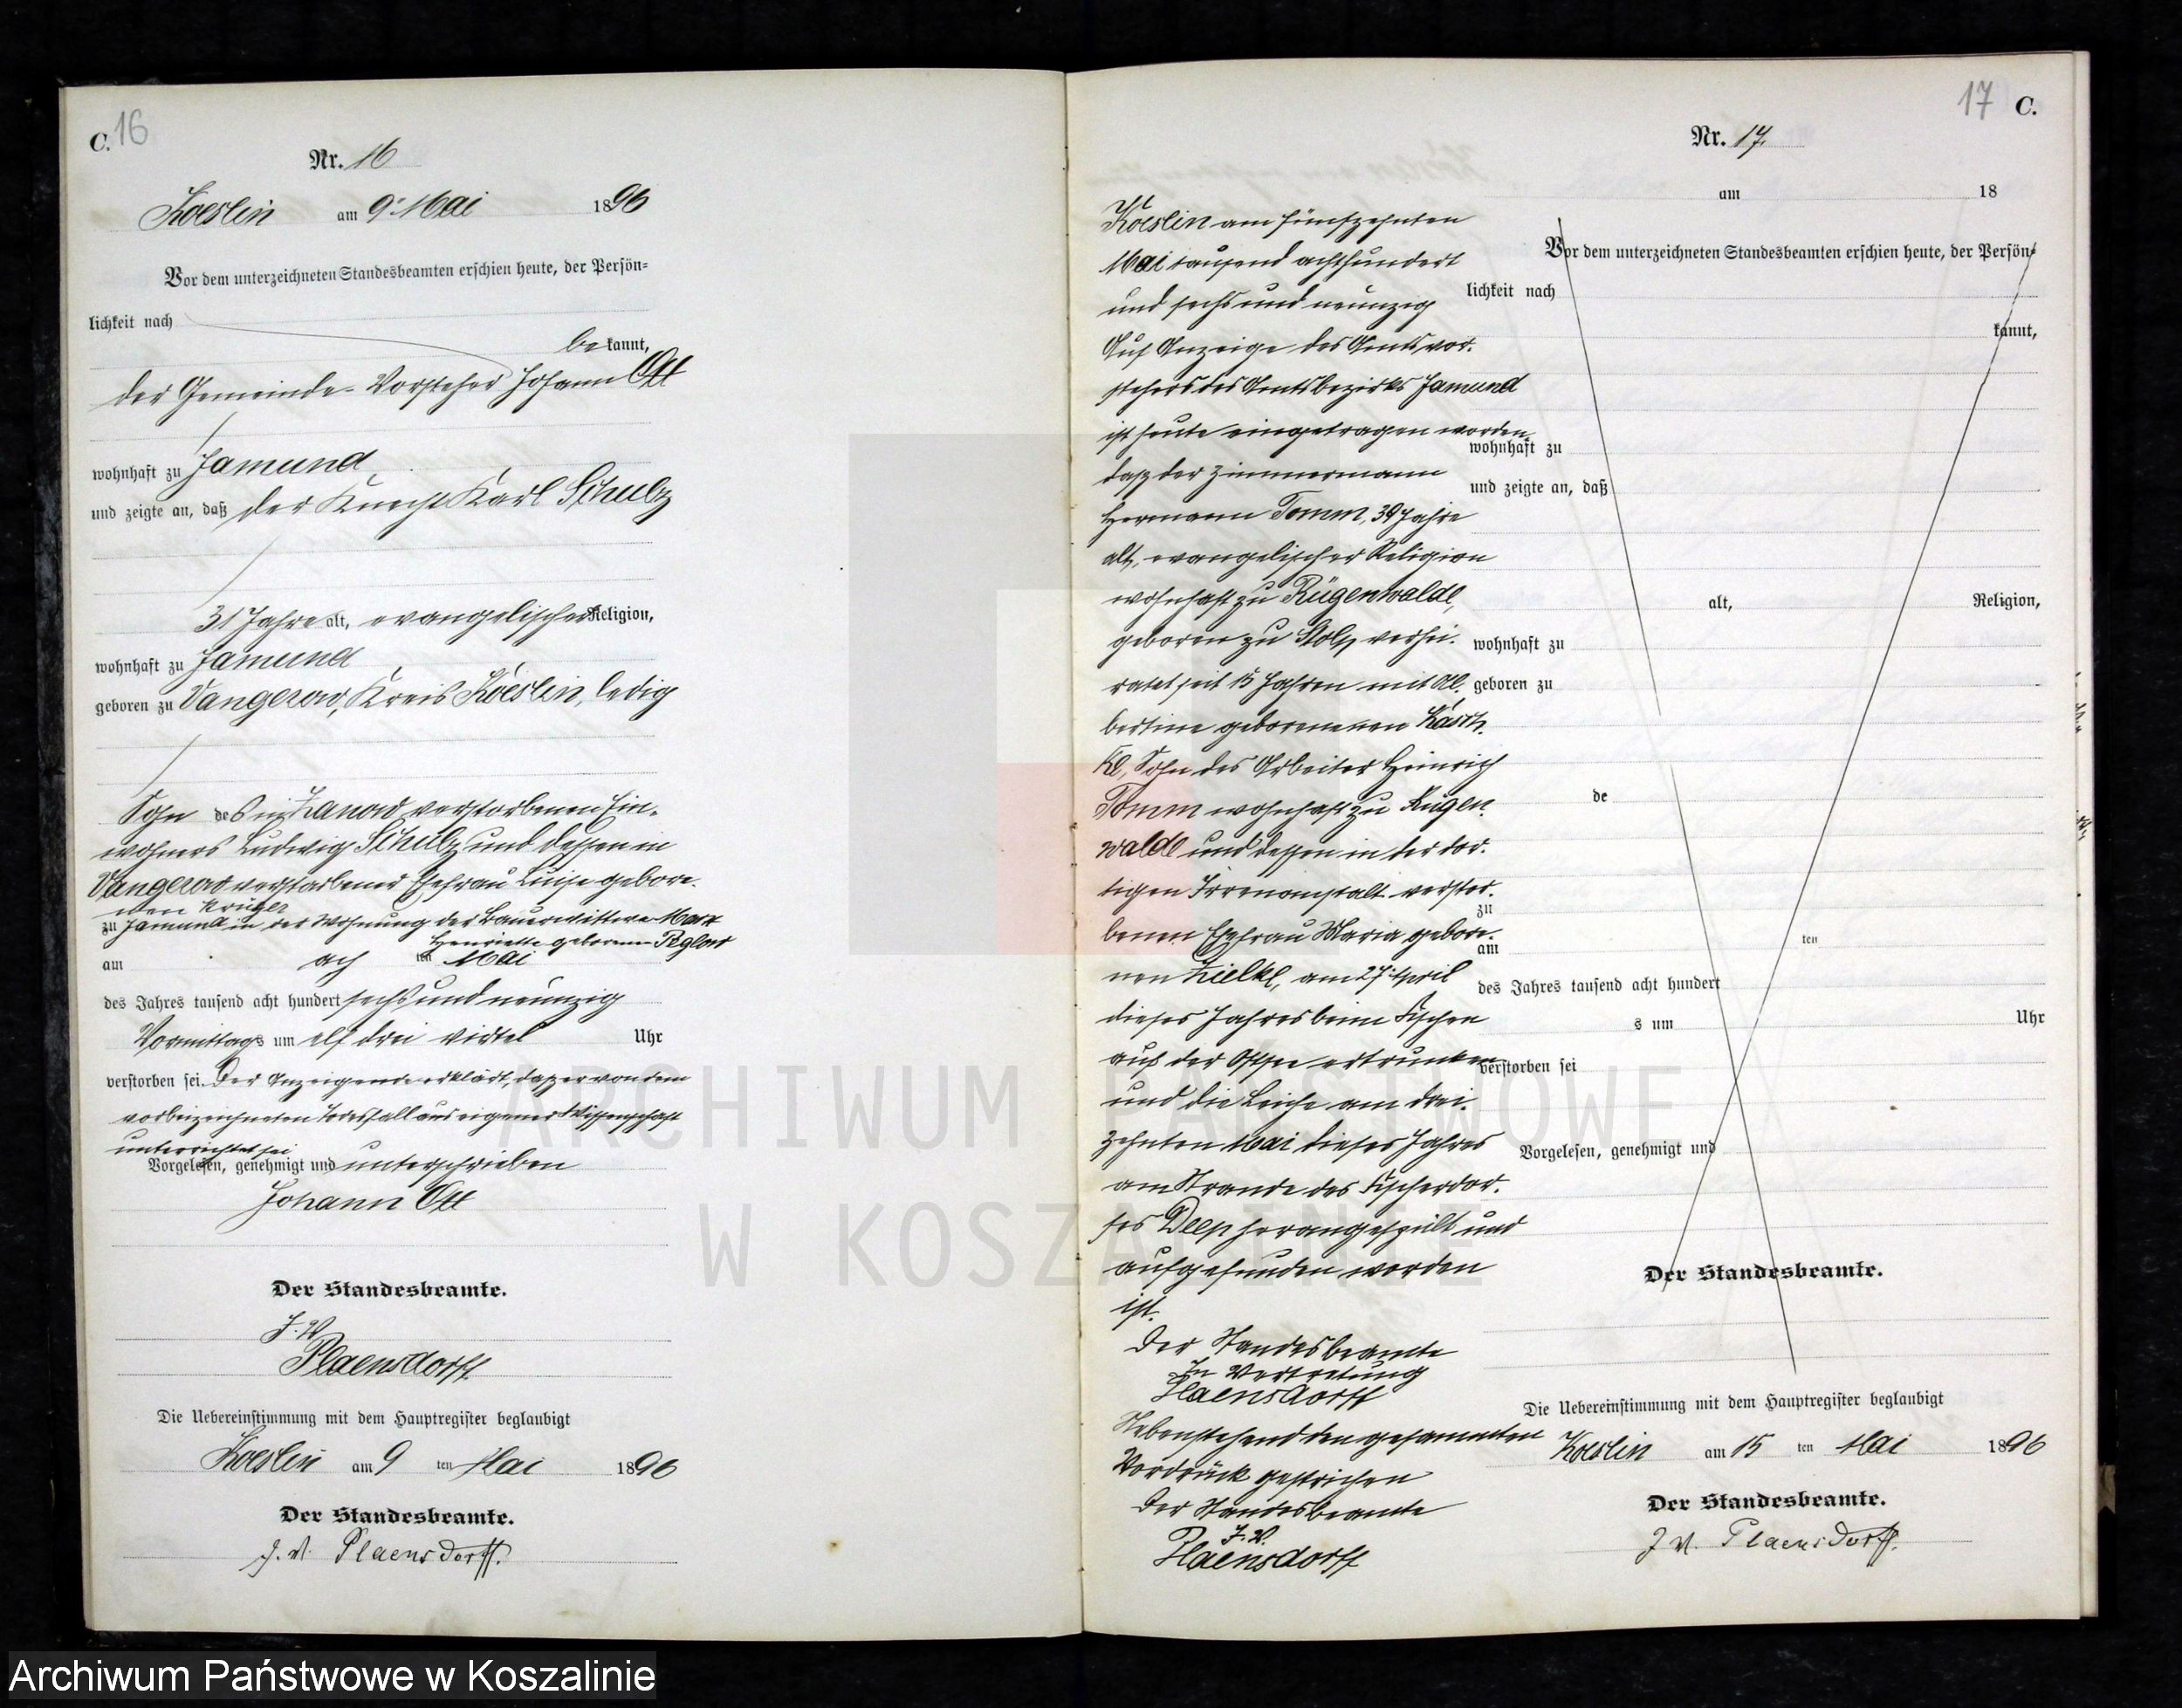 C. 16
Nr. 16
Koeslin am 9. Mai 1896
Vor dem unterzeichneten Standesbeamten erschien heute, der Persön-
lichkeit nach
be kannt,
der Gemeinde-Vorsteher Johann Ott
wohnhaft zu Jamund
und zeigte an, daß der Knecht Karl Schulz
31 Jahre alt, evangelischer Religion,
wohnhaft zu Jamund
geboren zu Vangerow, Kreis Köslin, ledig
Sohn des in Zanow verstorbenen Ein-
wohners Ludwig Schulz und dessen in
Vangerow verstorbener Ehefrau Luise gebore-
nen Krüger
zu Jamund in der Wohnung der Bauerwittwe
Henriette geborenen
am acht ten Mai
des Jahres tausend acht hundert sechs und neunzig
Vormittags um elf drei viertel Uhr
verstorben sei. Der Anzeigende erklärt, daß er von dem
vorbezeichneten Todesfall aus eigener Wissenschaft
unterrichtet sei
Vorgelesen, genehmigt und unterschrieben
Johann Ott
Der Standesbeamte.
J. V.
Plaensdorff
Die Uebereinstimmung mit dem Hauptregister beglaubigt
Koeslin am 9 ten Mai 1896
Der Standesbeamte.
J. V. Plaensdorff.
17 C.
Nr. 17.
am 18
Koeslin am fünfzehnten
Mai tausend achthundert
und sechs und neunzig
Auf Anzeige des Amtsvor-
stehers des Amtsbezirks Jamund
ist heute eingetragen worden,
daß der Zimmermann
Hermann Tomm, 39 Jahre
alt, evangelischer Religion
wohnhaft zu Rügenwalde,
geboren zu Stolp verhei-
ratet seit 15 Jahren mit Al-
bertine geborenen
Sohn des Arbeiter Heinrich
Tomm wohnhaft zu Rügen-
walde und dessen in der dor-
tigen Irrenanstalt verstor-
benen Ehefrau Maria gebore-
nen Zielke, am 27. April
dieses Jahres beim Fischen
auf der Ostsee ertrunken
und die Leiche am drei-
zehnten Mai dieses Jahres
am Strande des Fischerdor-
fes Deep herangespült und
aufgefunden worden
ist.
Der Standesbeamte
In Vertretung
Plaensdorff
Nebenstehend den gesammten
Vordruck gestrichen
Der Standesbeamte
J. V.
Plaensdorff
Vor dem unterzeichneten Standesbeamten erschien heute, der Persön-
lichkeit nach
kannt,
wohnhaft zu
und zeigte an, daß
alt, Religion,
wohnhaft zu
geboren zu
de
zu
am ten
des Jahres tausend acht hundert
s um Uhr
verstorben sei
Vorgelesen, genehmigt und
Der Standesbeamte.
Die Uebereinstimmung mit dem Hauptregister beglaubigt
Koeslin am 15 ten Mai 1896
Der Standesbeamte.
J. V. Plaensdorff.
ARCHIWUM PAŃSTWOWE
W KOSZALINIE
Archiwum Państwowe w Koszalinie